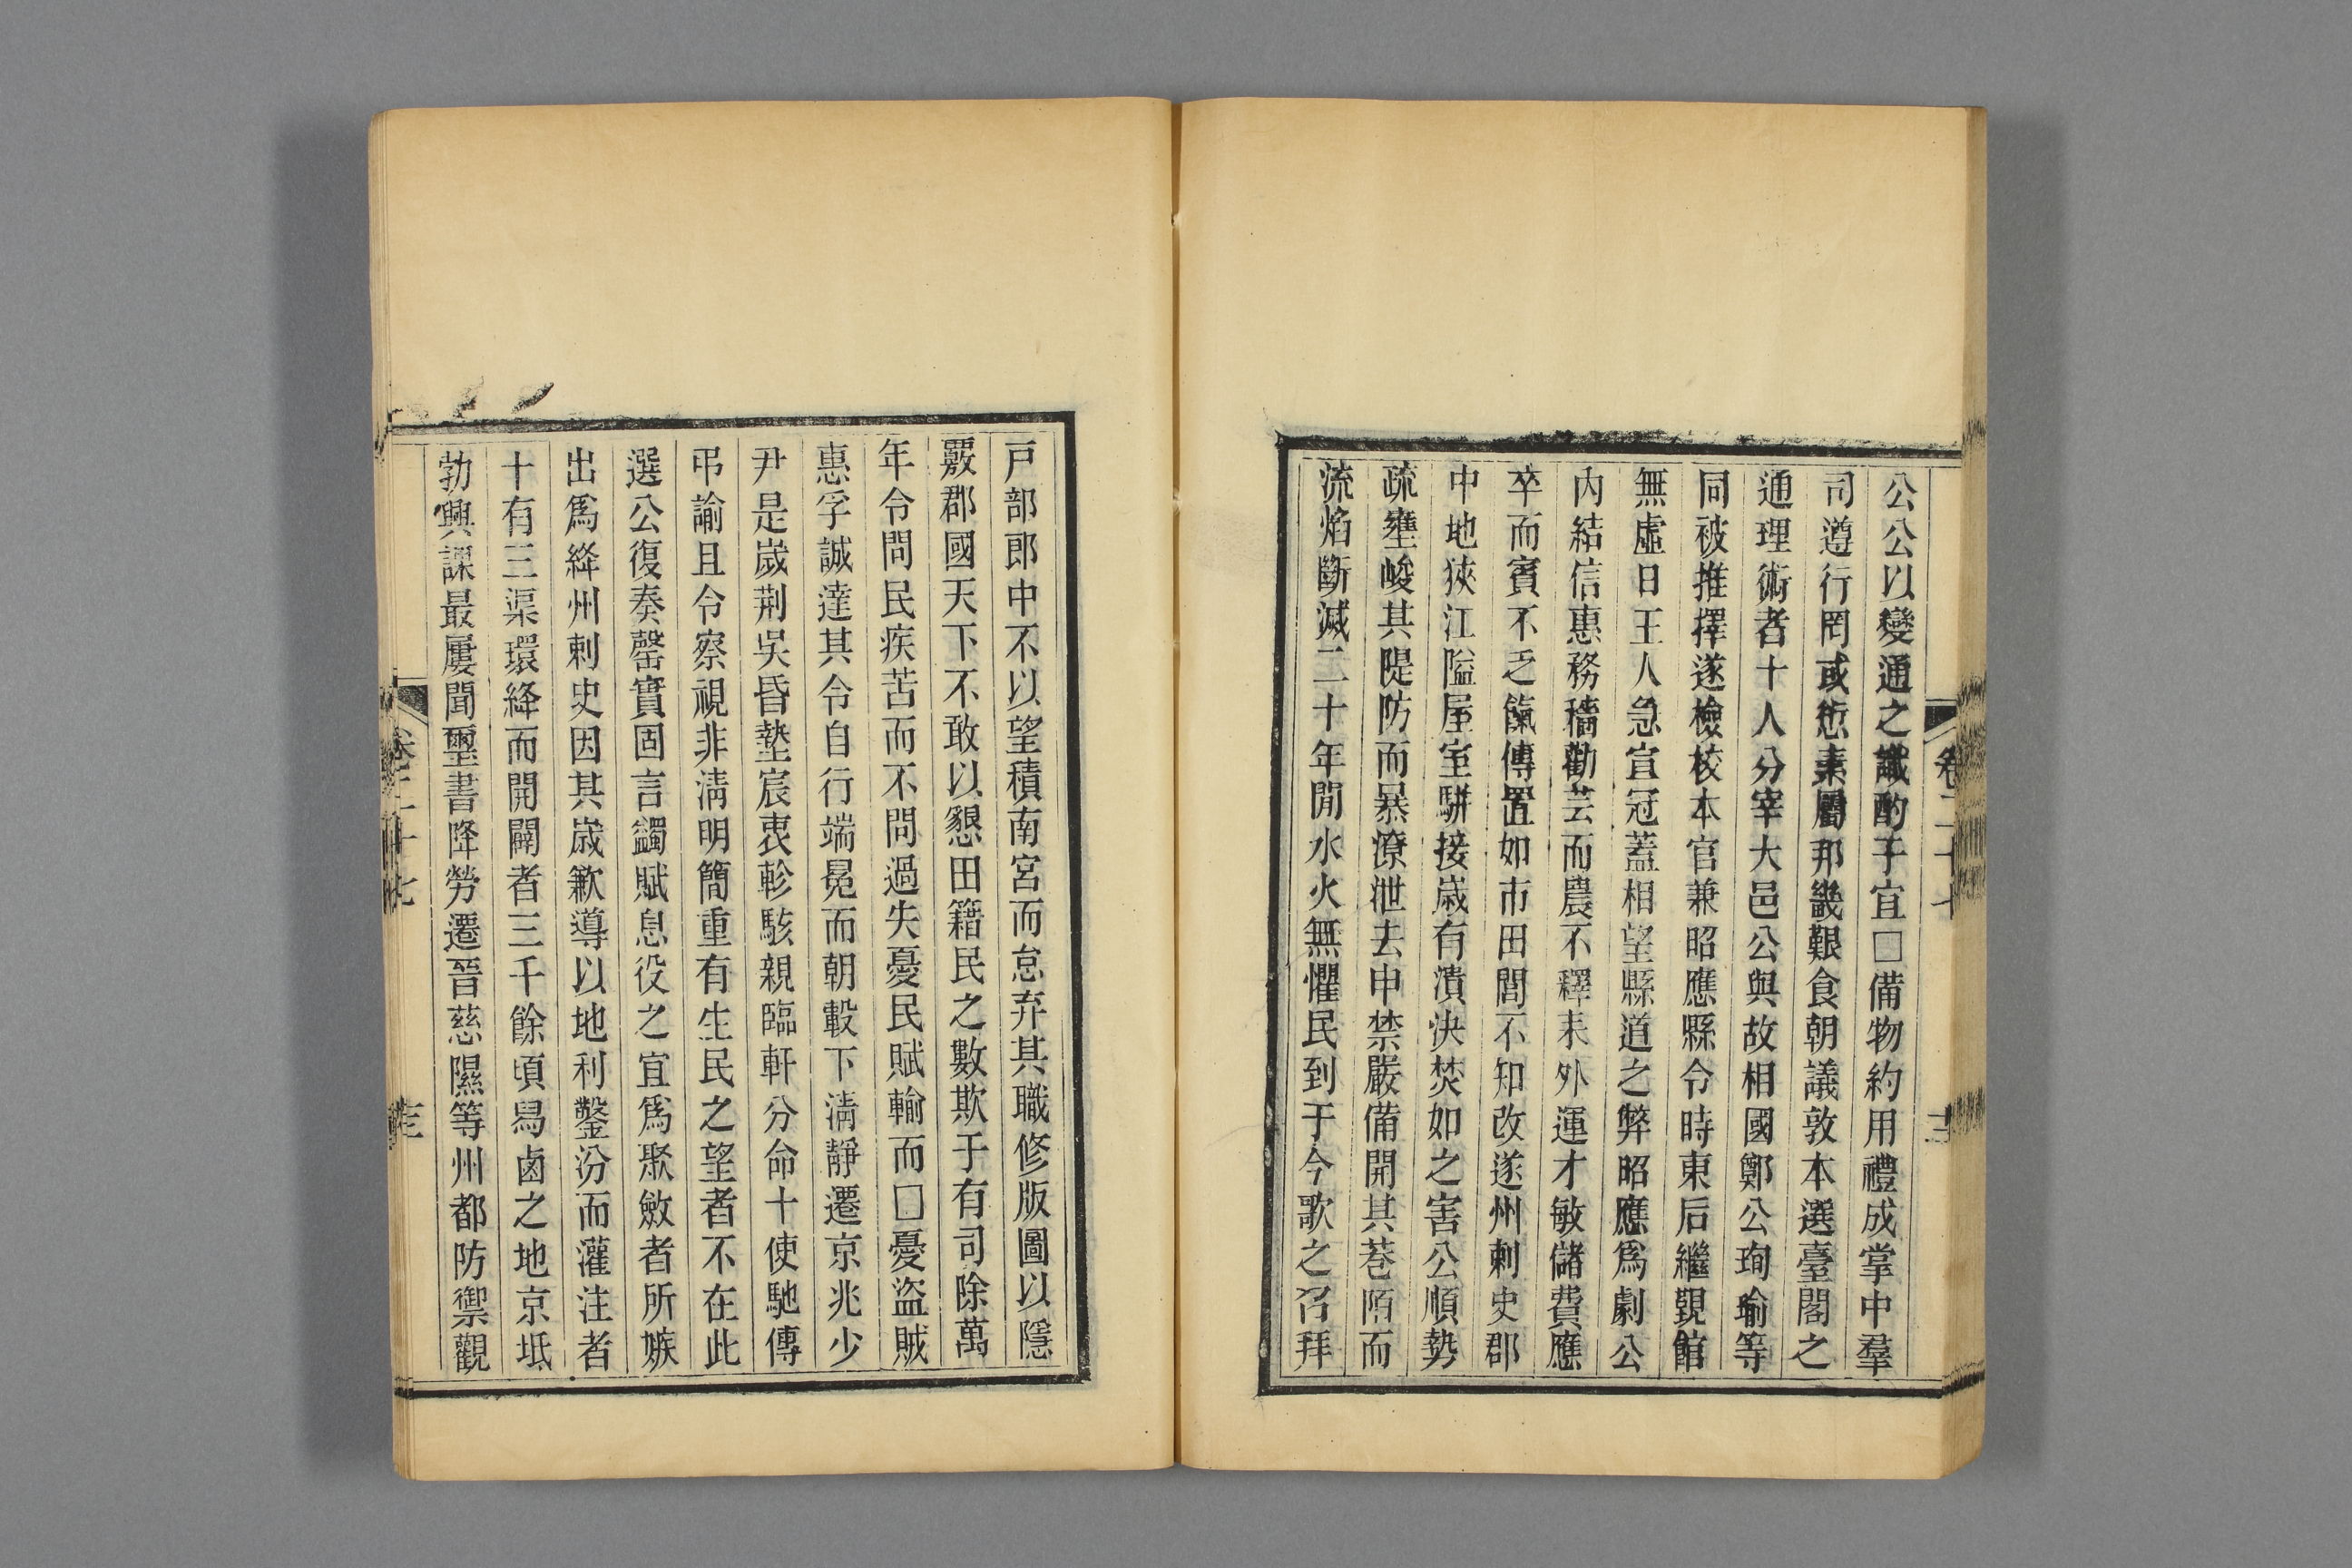 公公以變通之識酌子宜□備物約用禮成掌中羣
司遵行罔或愆素屬邦畿艱食朝議敦本選臺閣之
通理術者十人分宰大邑公與故相國鄭公珣瑜等
同被推擇遂檢校本官兼昭應縣令時東后繼覲館
無虛日王人急宣冠蓋相望縣道之弊昭應爲劇公
內結信惠務穡勸芸而農不釋耒外運才敏儲費應
卒而賓不乏餼傳置如市田閭不知改遂州刺史郡
中地狹江隘屋室駢接歲有潰決焚如之害公順勢
疏壅峻其隄防而暴潦泄去申禁嚴備開其巷陌而
流焰斷滅二十年閒水火無懼民到于今歌之召拜
卷二十七
戸部郎中不以望積南宮而怠弃其職修版圖以隱
覈郡國天下不敢以懇田籍民之數欺于有司除萬
年令問民疾苦而不問過失憂民賦輸而□憂盜賊
惠孚誠達其令自行端冕而朝轂下淸靜遷京兆少
尹是歲荆吳昏墊宸衷軫駭親臨軒分命十使馳傳
弔諭且令察視非淸明簡重有生民之望者不在此
選公復奏罄實固言蠲賦息役之宜爲聚斂者所嫉
出爲絳州刺史因其歲歉導以地利鑿汾而灌注者
十有三渠環絳而開闢者三千餘頃舄鹵之地京坻
勃興課最屢聞璽書降勞遷晉慈隰等州都防禦觀
卷二十七